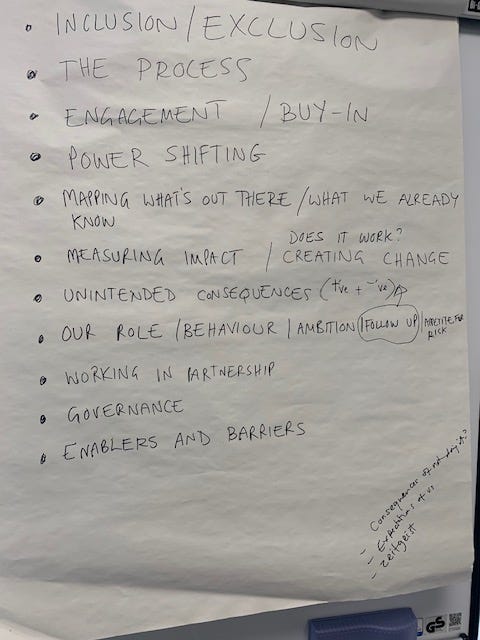 • INCLUSION/EXCLUSION
• THE PROCESS
• ENGAGEMENT / BUY-IN
• POWER SHIFTING
• MAPPING WHAT'S OUT THERE / WHAT WE ALREADY
KNOW
DOES IT WORK?
• MEASURING IMPACT / CREATING CHANGE
• UNINTENDED CONSEQUENCES (+'ve + -'ve)
• OUR ROLE / BEHAVIOUR / AMBITION / FOLLOW UP / APPETITE FOR
RISK
• WORKING IN PARTNERSHIP
• GOVERNANCE
• ENABLERS AND BARRIERS
- Consequences of not doing it?
- Expectations of us
- Zeitgeist
GS